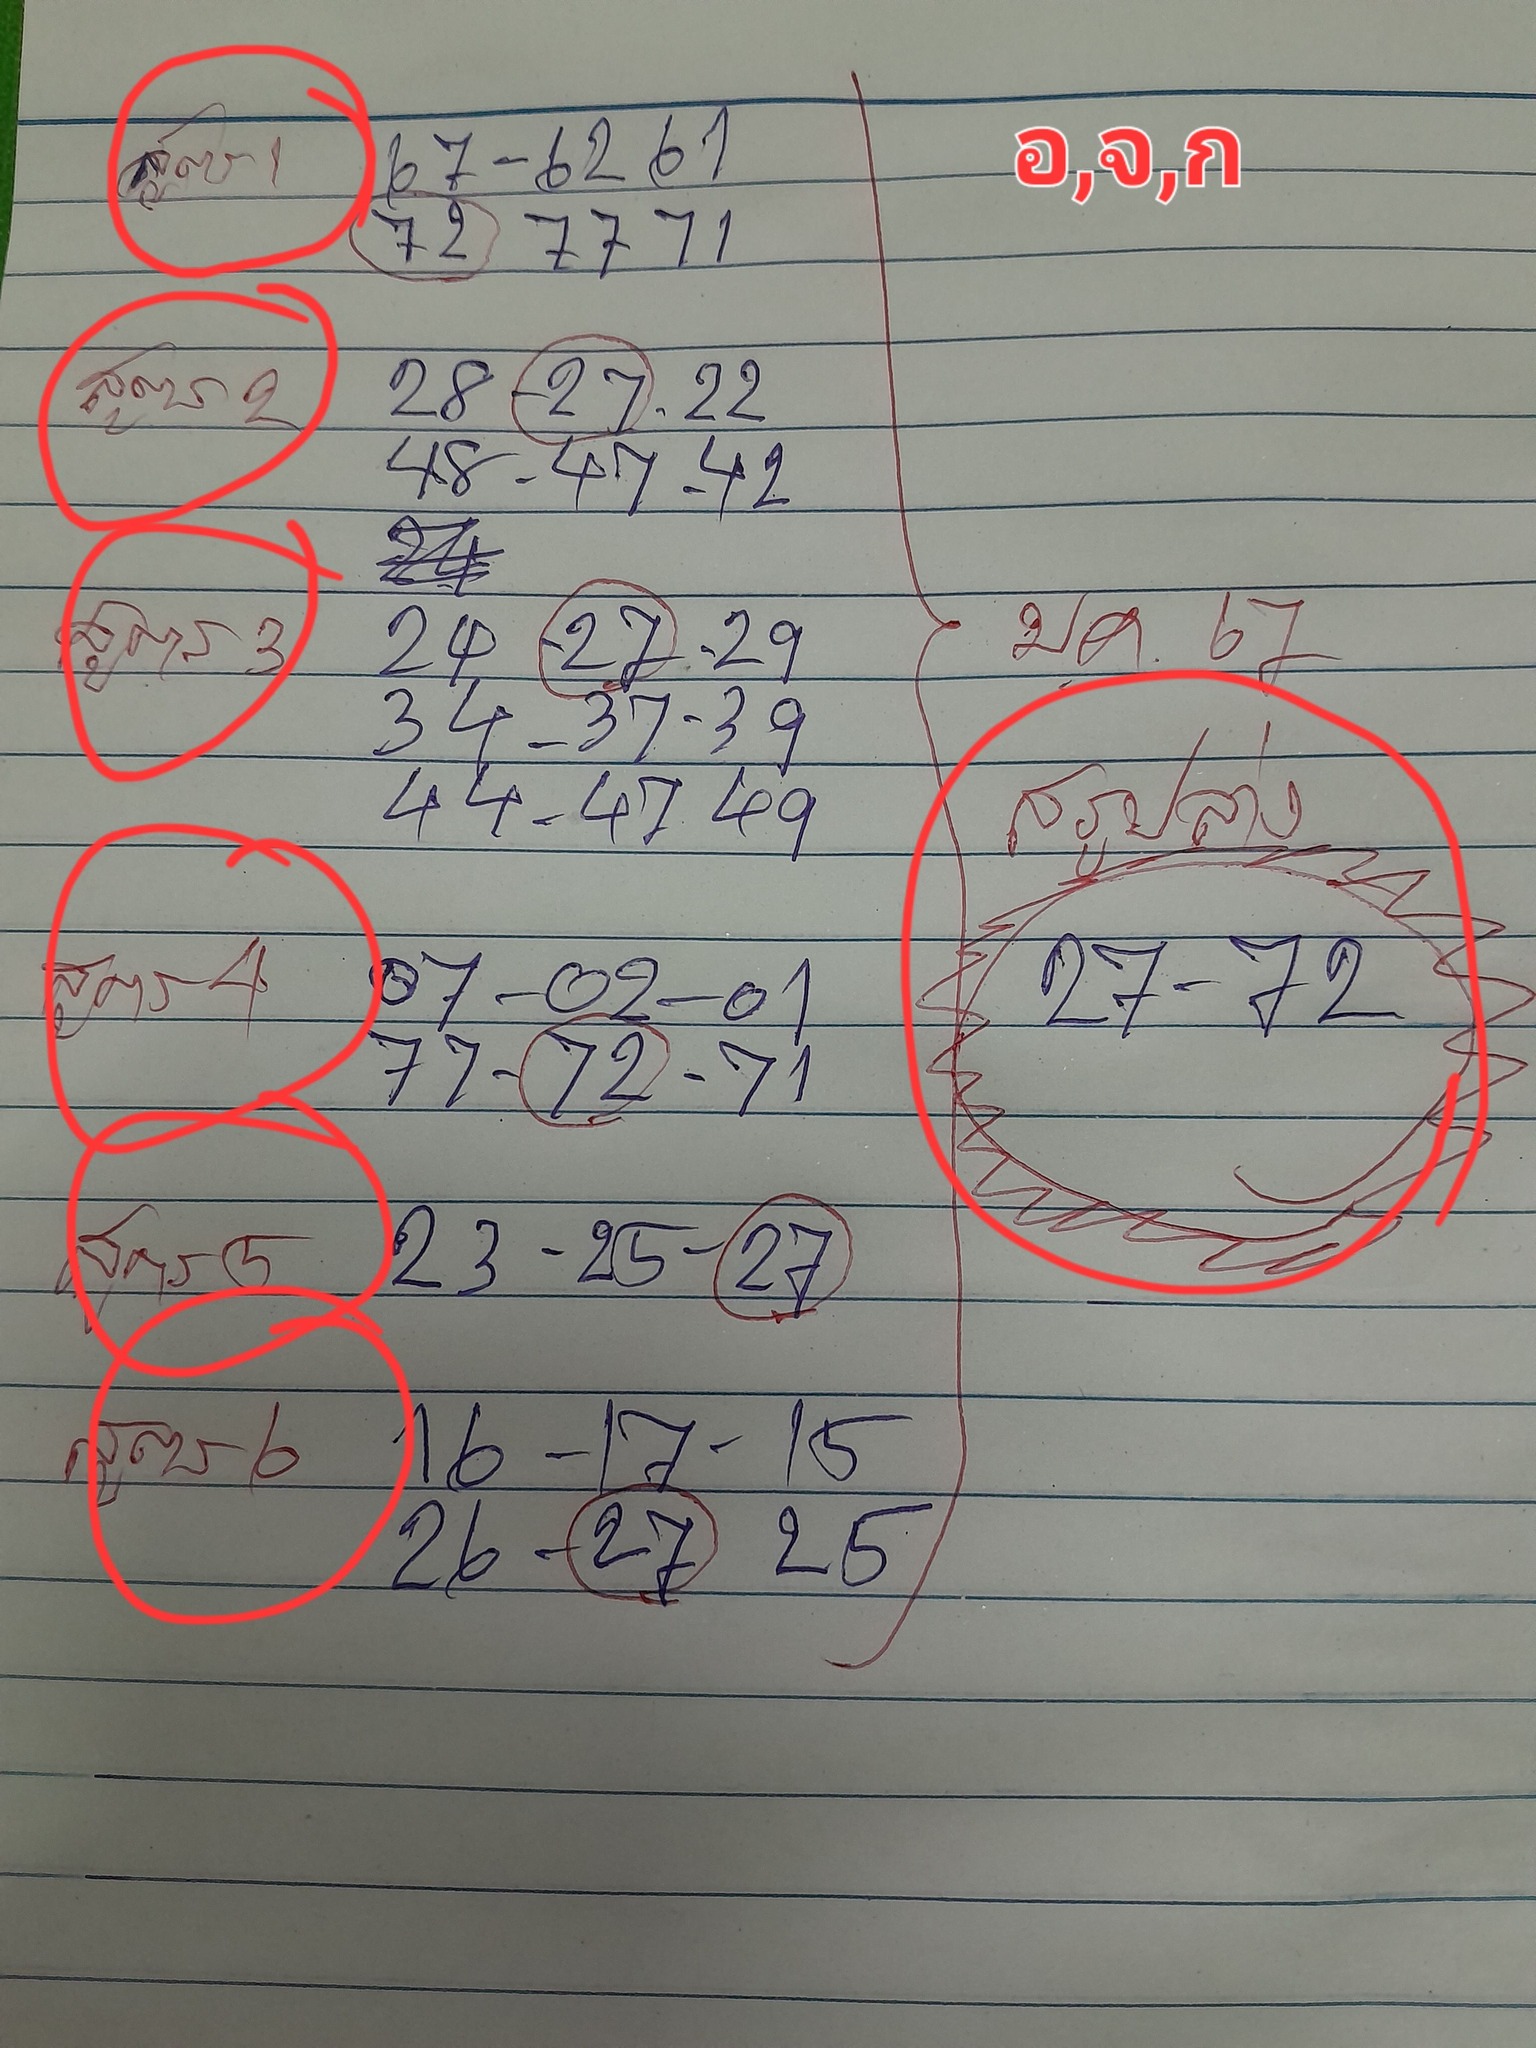 อ,จ,ก
สูตร 1 67-62 61
72 77 71
สูตร 2 28-27.22
48-47-42
สูตร 3 24-27-29
34-37-39
44-47 49
สูตร 4 07-02-01
77-72-71
สูตร 5 23-25-27
สูตร 6 16-17-15
26-27 25
ม,ค. 67
สรุปล่าง
27-72